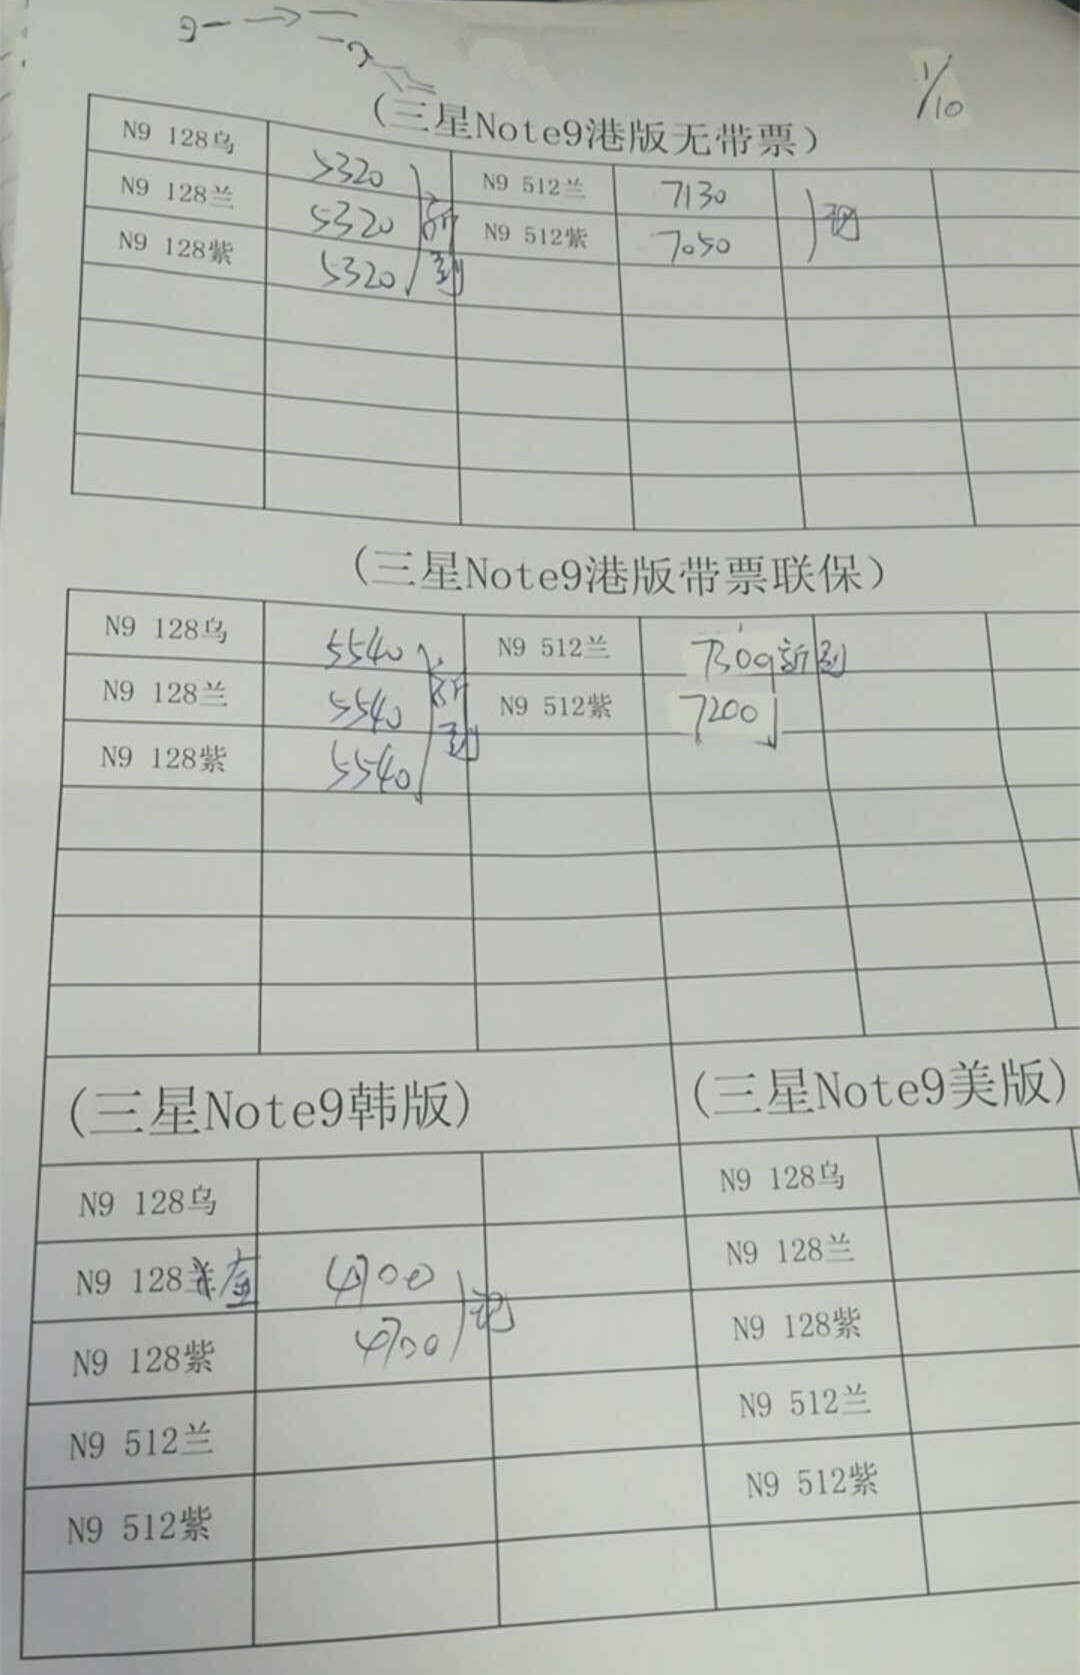 1/10
(三星Note9港版无带票)
N9 128乌 5320 N9 512兰 7130
N9 128兰 5320 新 N9 512紫 7050
N9 128紫 5320 到
(三星Note9港版带票联保)
N9 128乌 5540 N9 512兰 7309新到
N9 128兰 5540 新 N9 512紫 7200
N9 128紫 5540 到
(三星Note9韩版) (三星Note9美版)
N9 128乌 N9 128乌
N9 128 4700 N9 128兰
N9 128紫 4700 N9 128紫
N9 512兰 N9 512兰
N9 512紫 N9 512紫